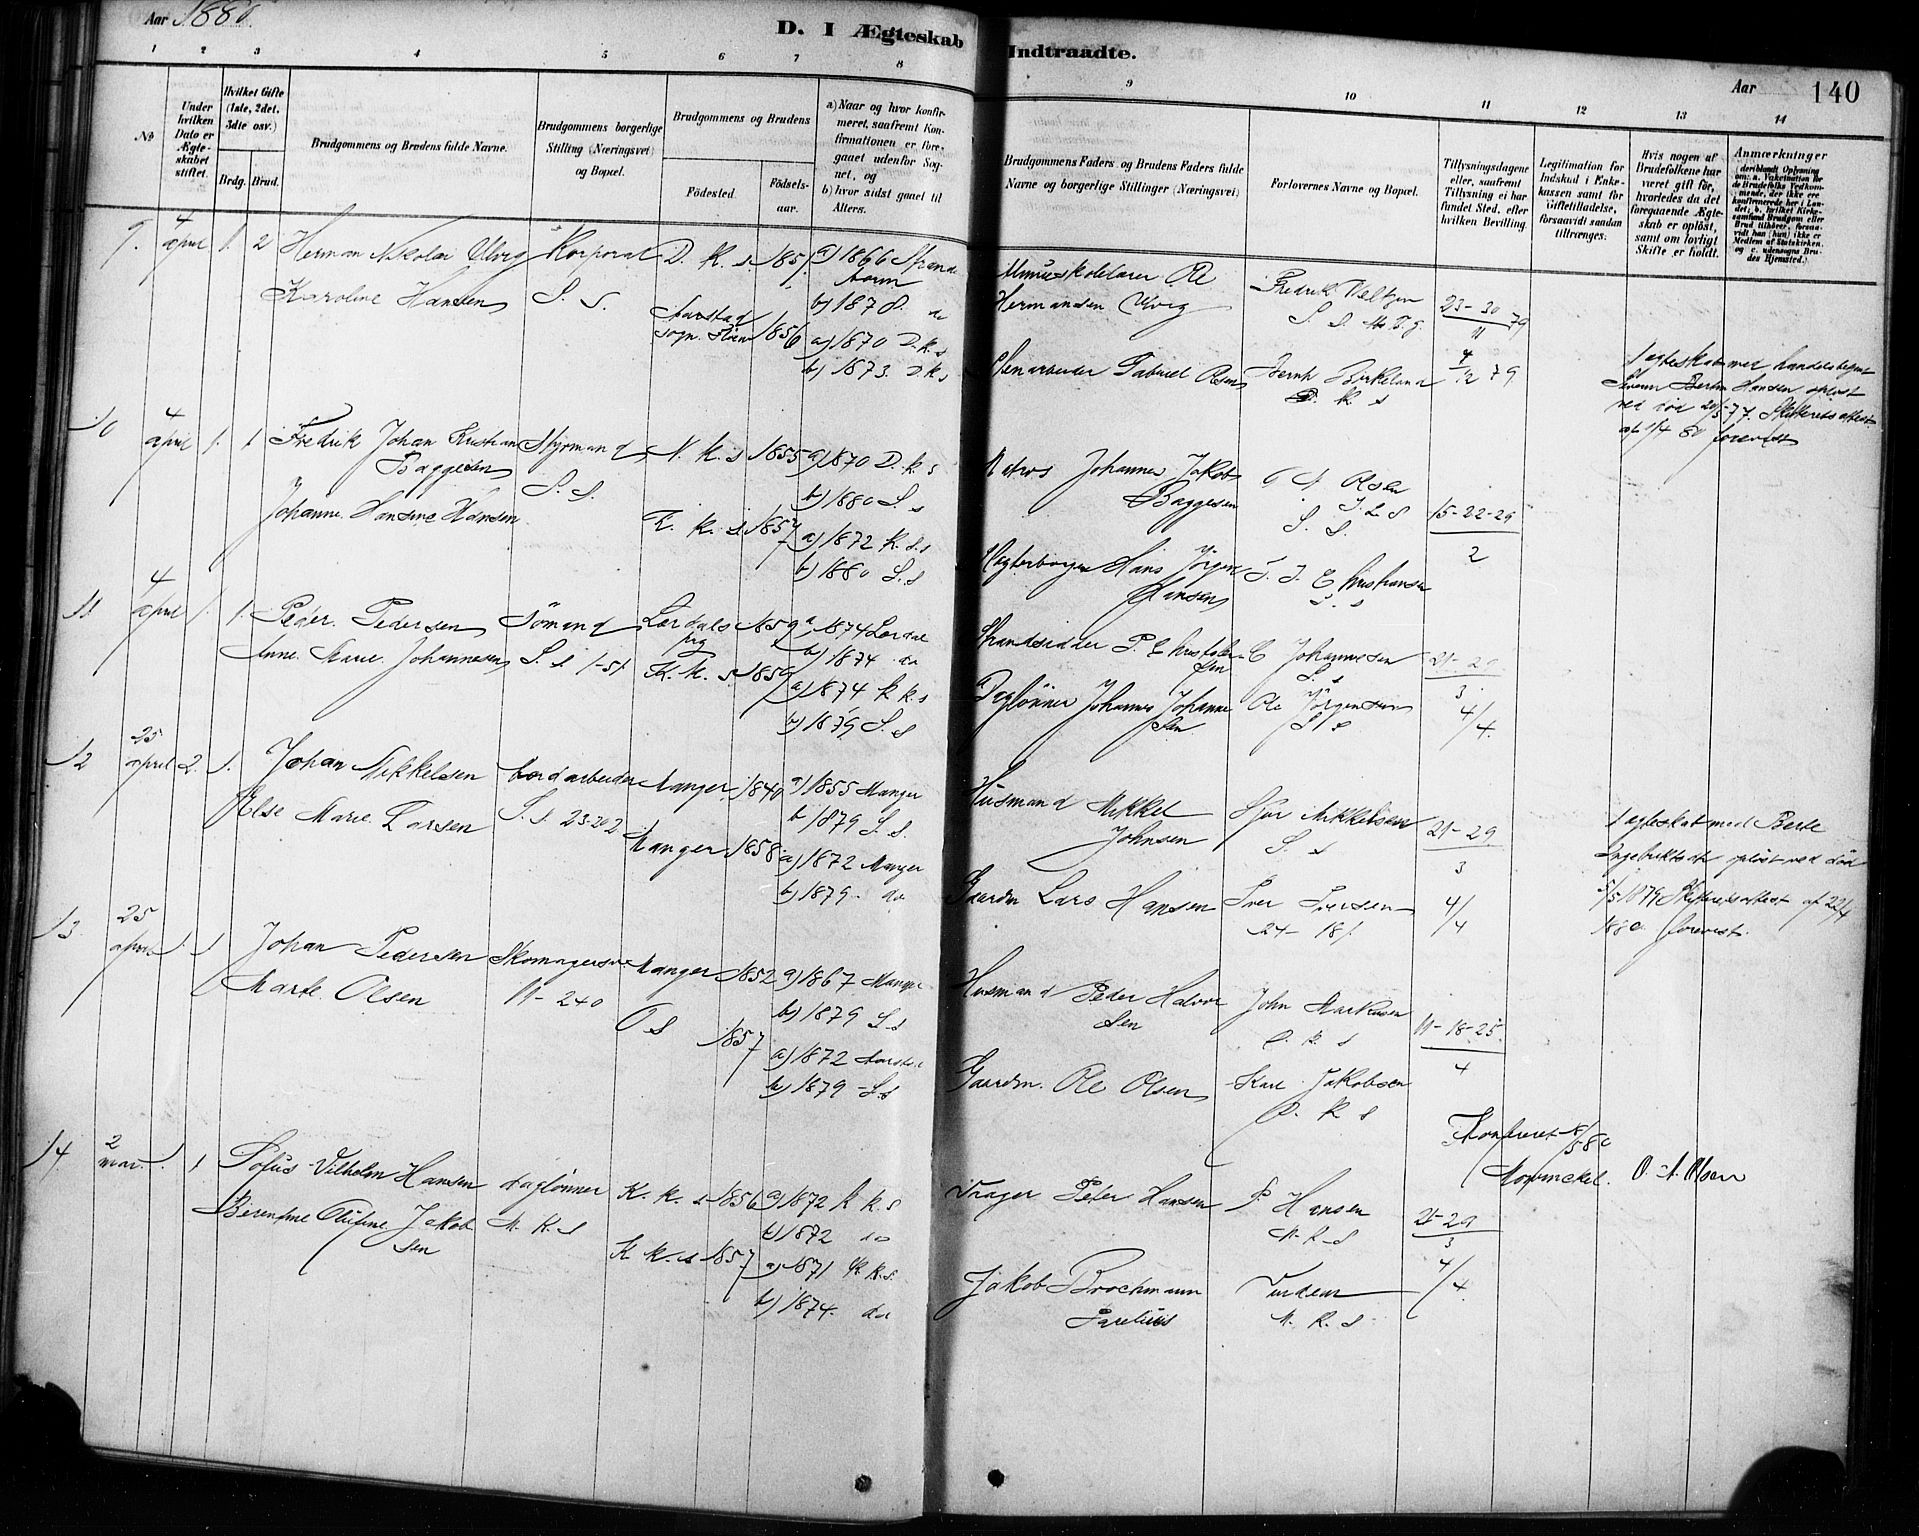 Aar 1880.
D. I Ægteskab Indtraadte.
Aar 140
1 2 3 4 5 6 7 8 9 10 11 12 13 14
No
Under hvilken Dato er Ægteskabet stiftet.
Hvilket Gifte (1ste, 2det, 3die osv.)
Brdg. Brud.
Brudgommens og Brudens fulde Navne.
Brudgommens borgerlige Stilling (Næringsvei) og Bopæl.
Brudgommens og Brudens
Fødested.
Fødselsaar.
a) Naar og hvor konfirmeret, saafremt Konfirmationen er foregaaet udenfor Sognet, og
b) hvor sidst gaaet til Alters.
Brudgommens Faders og Brudens Faders fulde Navne og borgerlige Stillinger (Næringsvei)
Forlovernes Navne og Bopæl.
Tillysningsdagene eller, saafremt Tillysning ei har fundet Sted, efter hvilken Bevilling.
Legitimation for Indskud i Enkekassen samt for Giftetilladelse, forsaavidt saadan tiltrænges.
Hvis nogen af Brudefolkene har været gift før, hvorledes da det foregaaende Ægteskab er opløst, samt om lovligt Skifte er holdt.
Anmærkninger
9. 4 april 1. 2 Herman Nikolai Ulvig Korporal D. k. s. 1851 a) 1866 Strandebarm
b) 1878. do
Karoline Hansen S. S. Aarstad sogn 1856 a) 1870 D. k. s
b) 1873. D. k. s
Ole Hermansen Ulvig Fredrik Weltzin 23-30/11 79
Stenarbeider Gabriel Olsen Bernh Birkeland D. k. s 4/12 79
I egteskab med handelsbegnt
Hansen opløst
ved død Skifteretsattest
af 1/4 80 forevist
10 4 april 1. 1 Fredrik Johan Kristian Baggesen Styrmand S. S. N. k. s 1855 a) 1870 D. k. s
b) 1880 S. s
Johanne Hansine Hansen K. k. s. 1857 a) 1872 K. k. s
b) 1880 S. s
Matros Johannes Jakob Baggesen Olsen S. S. 15-22-29/2
Hans Jørgen Hansen Christiansen S. s
11 4 april 1. 1. Peder Pedersen Sømand Lærdals prg 1859 a) 1874 Lærdal
b) 1874 do
Anne Marie Johannesen S. s 1-51 K. k. s. 1859 a) 1874 k. k. s
b) 1879 S. s
Strandsidder P. Christofersen C Johannesen S. s 21-29/3
Daglønner Johannes Johannesen Ole Jørgensen S s 4/4.
12 25 april 2. 1. Johan Mikkelsen Jordarbeider Manger 1840 a) 1855 Manger
b) 1879 S. s.
Else Marie Larsen S. s. 23-202 Manger 1858 a) 1872 Manger
b) 1879. do
Husmand Mikkel Johnsen Sjur Mikkelsen S. s 21-29/3
Gaardm Lars Hansen Iver Iversen 24-181 4/4
I egteskab med Berte
Ingebriktsdt opløst ved død
5/5 1879 Skifteretsattest af 22/4
1880 forevist.
13 25 april 1. 1 Johan Pedersen Skomagersv. Manger 1852 a) 1867 Manger
b) 1879 S. s
Marte Olsen 11-240 O s 1857 a) 1872
b) 1879 S. s
Husmand Peder Halvorsen John Markusen D. k. s 11-18-25/4
Gaardm. Ole Olsen Karl Jakobsen D. k. s
Konfereret 8/5 80
Mohnckel. O. A. Olsen
14 2 mai 1. 1 Sofus Vilhelm Hansen daglønner K. k. s 1856 a) 1872 k k. s
b) 1872 do
Berentine Olufine Jakobsen N. K. s K k. s 1857 a) 1871 K. k. s.
b) 1874. do
Drager Peter Hansen P Hansen N. k. s 21-29/3
Jakob Brochmann Sarelius N. k. s 4/4